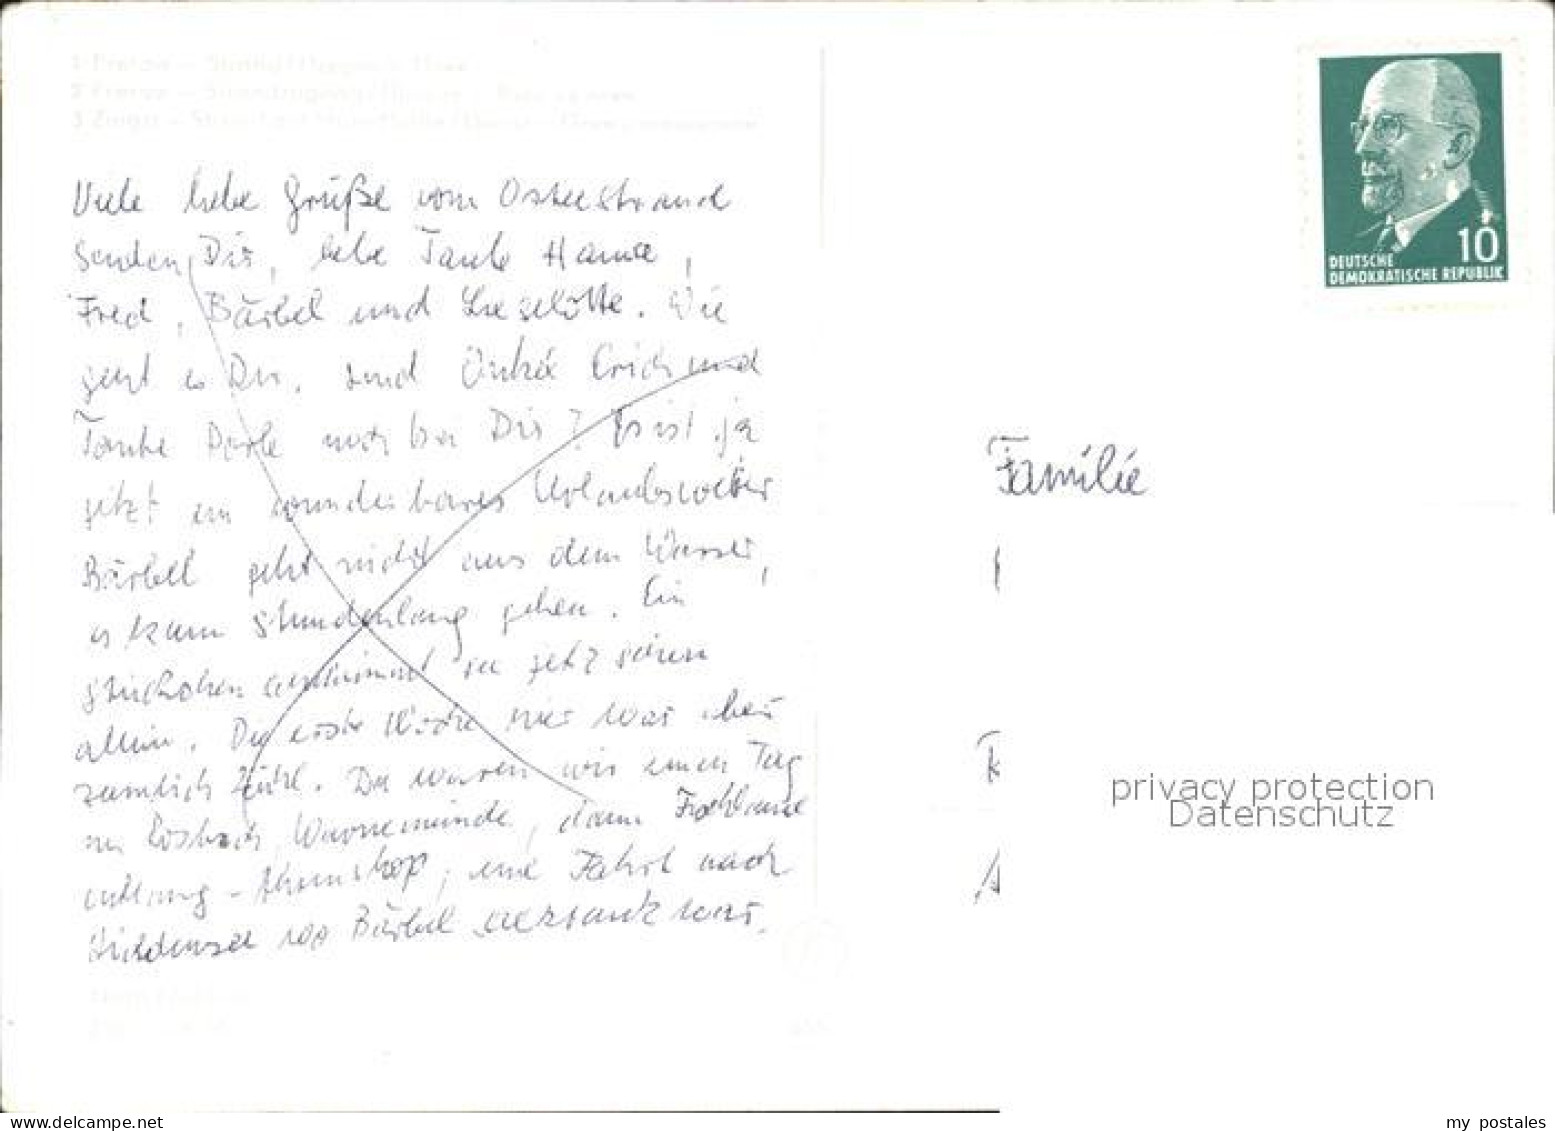 1 Prerow – Strand
2 Prerow –
3 Zingst –
Viele liebe Grüße vom Ostseestrand
senden Dir, liebe Tante Hanna,
Fred, Bärbel und Lieselotte. Wie
geht es Dir, sind Onkel Erich und
Tante noch bei Dir? Es ist ja
jetzt ein wunderbares Urlaubswetter
Bärbel geht nicht aus dem Wasser,
es kann stundenlang gehen. Ein
Stückchen schwimmt sie jetzt schon
allein. Die erste Woche hier war aber
ziemlich kühl. Da waren wir einen Tag
in Rostock Warnemünde, dann
– Ahrenshoop, eine Fahrt nach
Hiddensee wo Bärbel war.
Familie
10
DEUTSCHE
DEMOKRATISCHE REPUBLIK
privacy protection
Datenschutz
www.delcampe.net
my postales